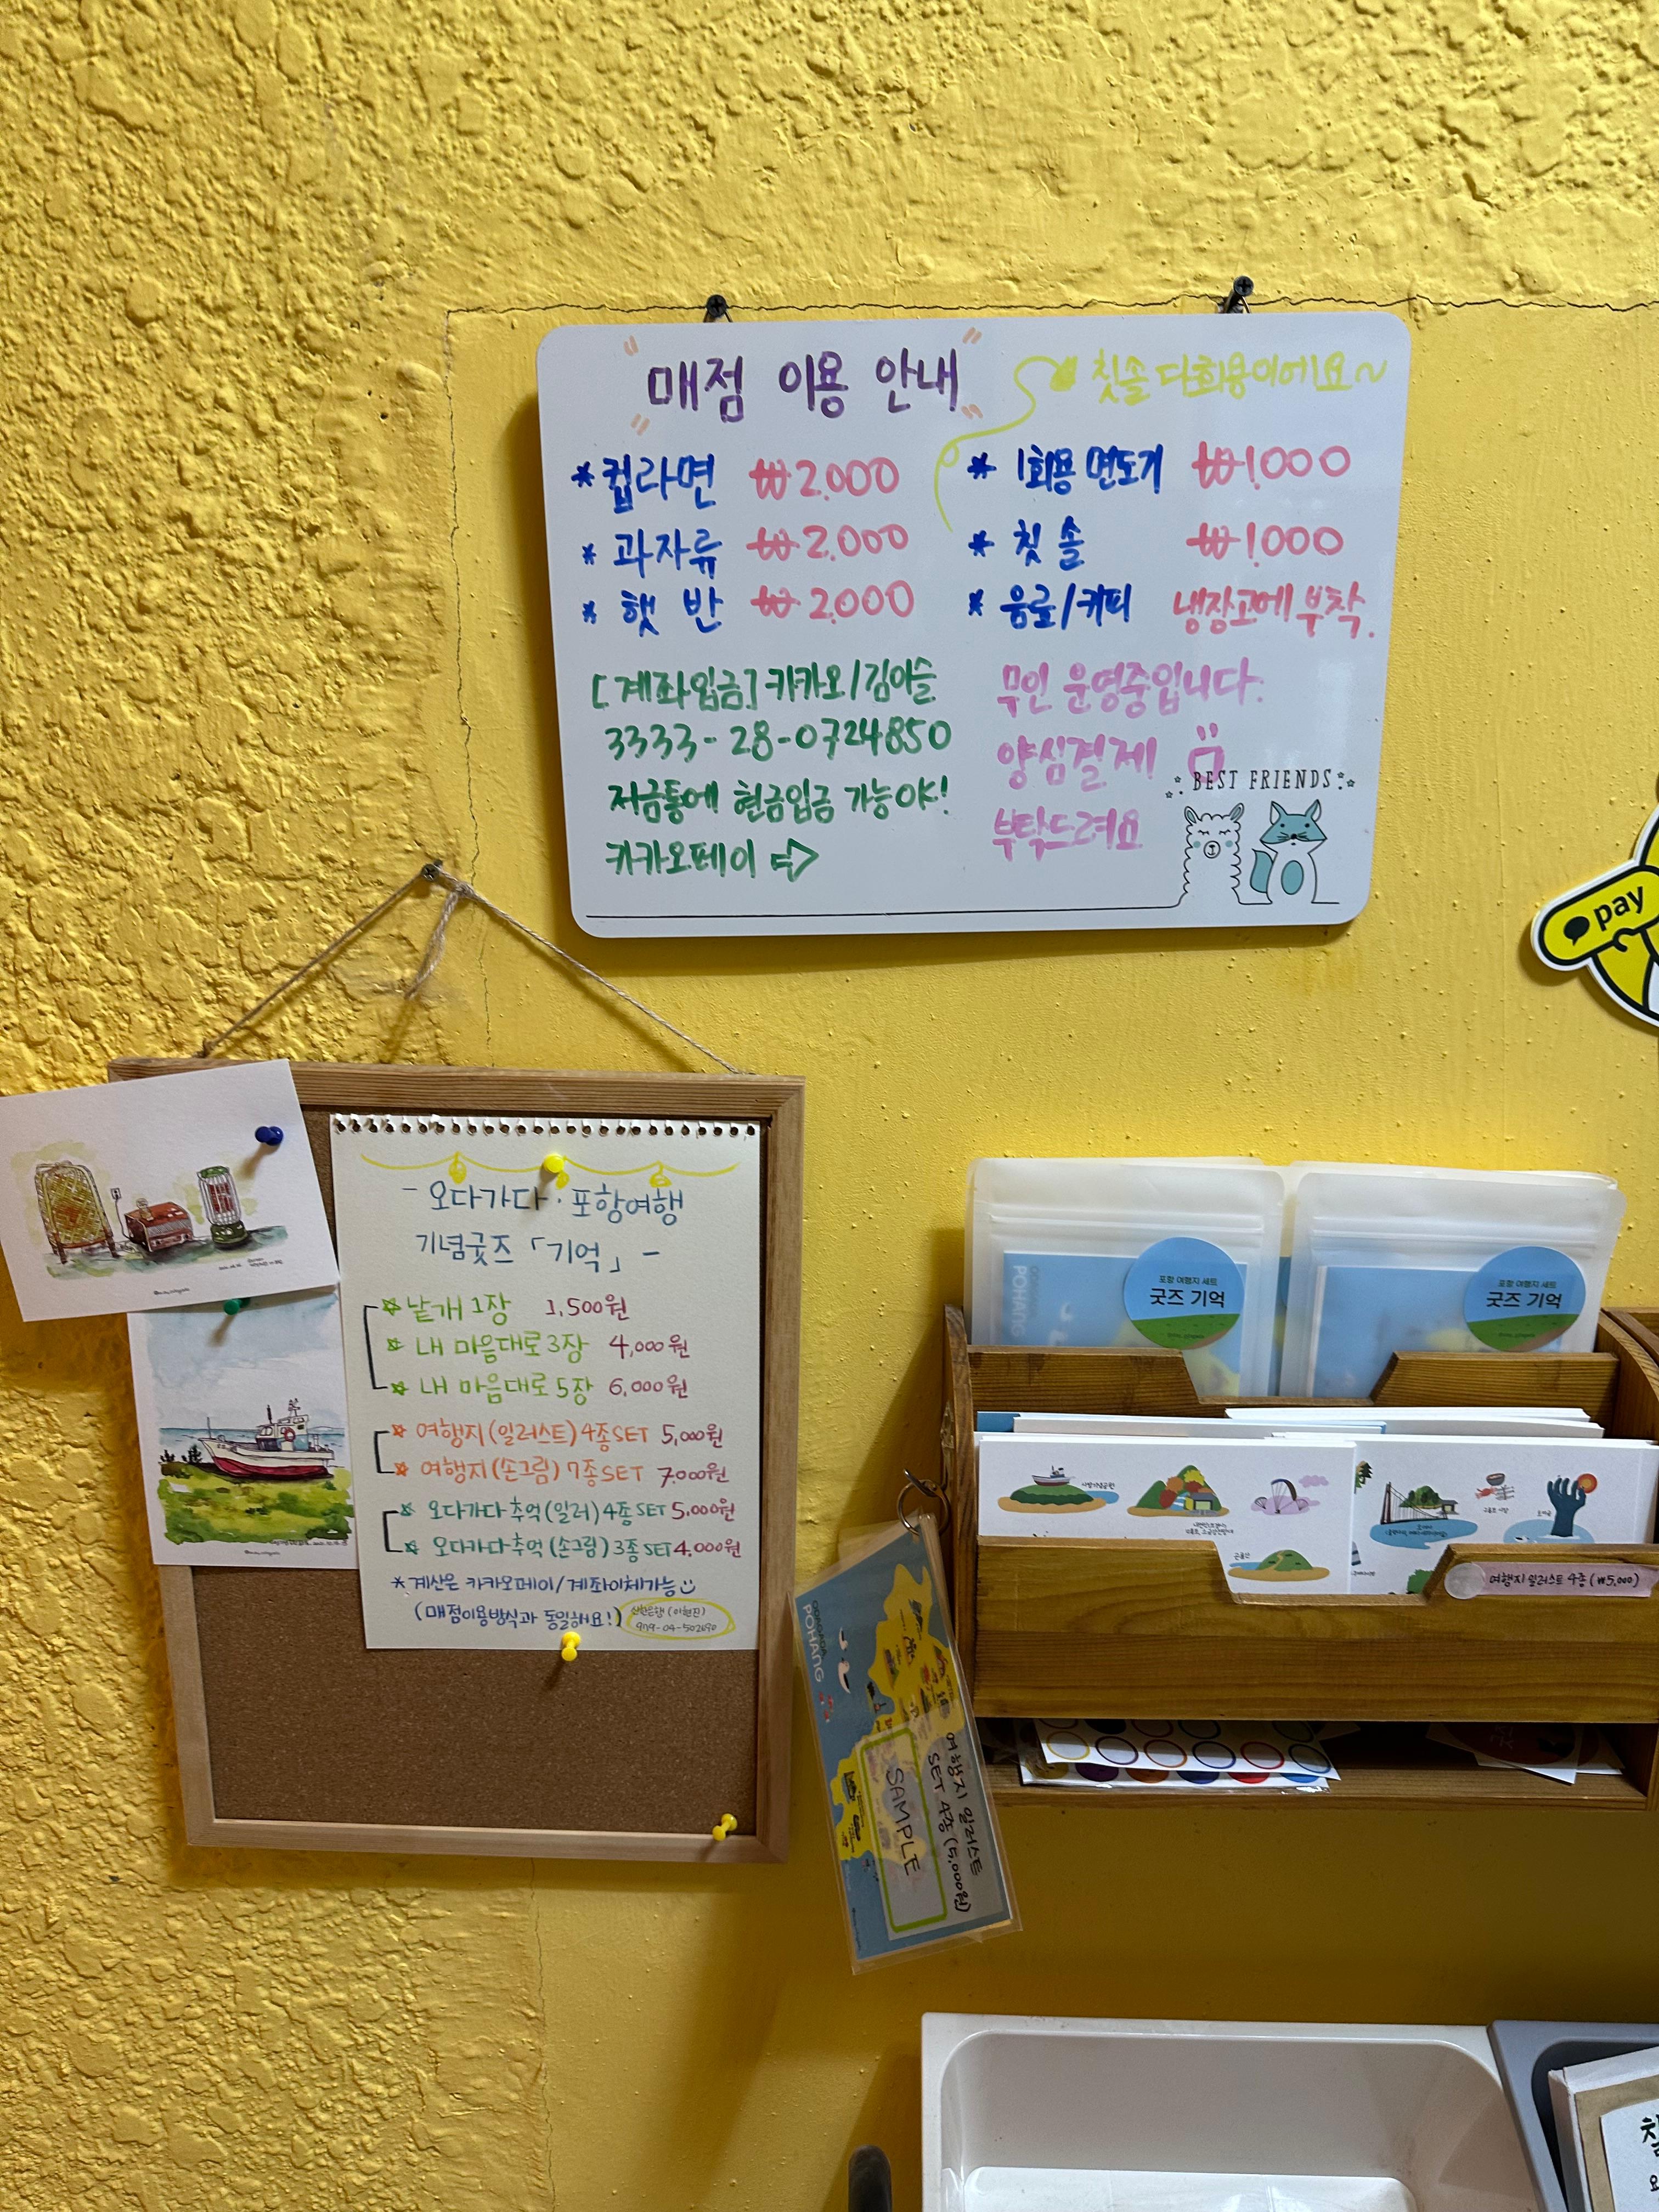 매점 이용 안내
칫솔 다회용이에요~
*컵라면 ₩2.000
*과자류 ₩2.000
*햇 반 ₩2.000
* 1회용 면도기 ₩1.000
* 칫 솔 ₩1.000
* 음료/커피 냉장고에 부착.
[계좌입금] 카카오/김아슬
3333-28-0724850
저금통에 현금입금 가능OK!
카카오페이
무인 운영중입니다.
양심결제
부탁드려요
BEST FRIENDS
pay
- 오다가다·포항여행
기념굿즈 「기억」 -
낱개 1장 1,500원
내 마음대로 3장 4,000원
내 마음대로 5장 6,000원
여행지(일러스트) 4종 SET 5,000원
여행지(손그림) 7종 SET 7,000원
오다가다 추억(일러) 4종 SET 5,000원
오다가다 추억(손그림) 3종 SET 4,000원
*계산은 카카오페이/계좌이체가능
(매점이용방식과 동일해요!)
신한은행 (이현진)
포항 여행지 세트
굿즈 기억
포항 여행지 세트
굿즈 기억
POHANG
여행지 일러스트 4종 (₩5,000)
POHANG
SAMPLE
여행지 일러스트
SET 4장 (5,000원)